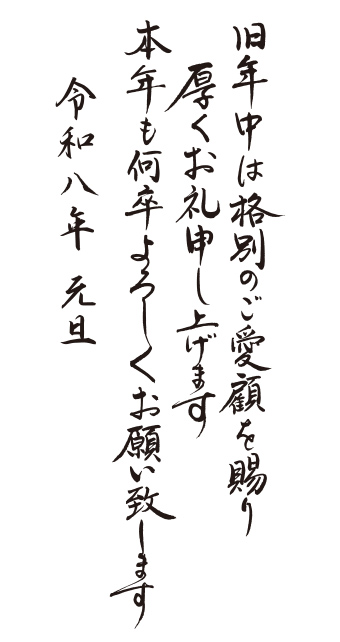 旧年中は格別のご愛顧を賜り
厚くお礼申し上げます
本年も何卒よろしくお願い致します
令和八年 元旦